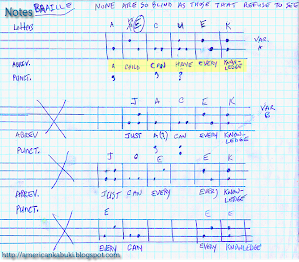 Notes BRAILLE NONE ARE SO BLIND AS THOSE THAT REFUSE TO SEE
Letters A E C U E K
VAR. A
ABREV. A CHILD CAN HAVE EVERY KNOW-
LEDGE
PUNCT.
J A C E K
VAR B
ABREV JUST A(1) CAN EVERY KNOW-
LEDGE
PUNCT.
J E E K
ABREV. JUST CAN EVERY EVERY KNOW-
LEDGE
PUNCT.
E E E
EVERY CAN EVERY KNOWLEDGE
http://americankabuki.blogspot.com